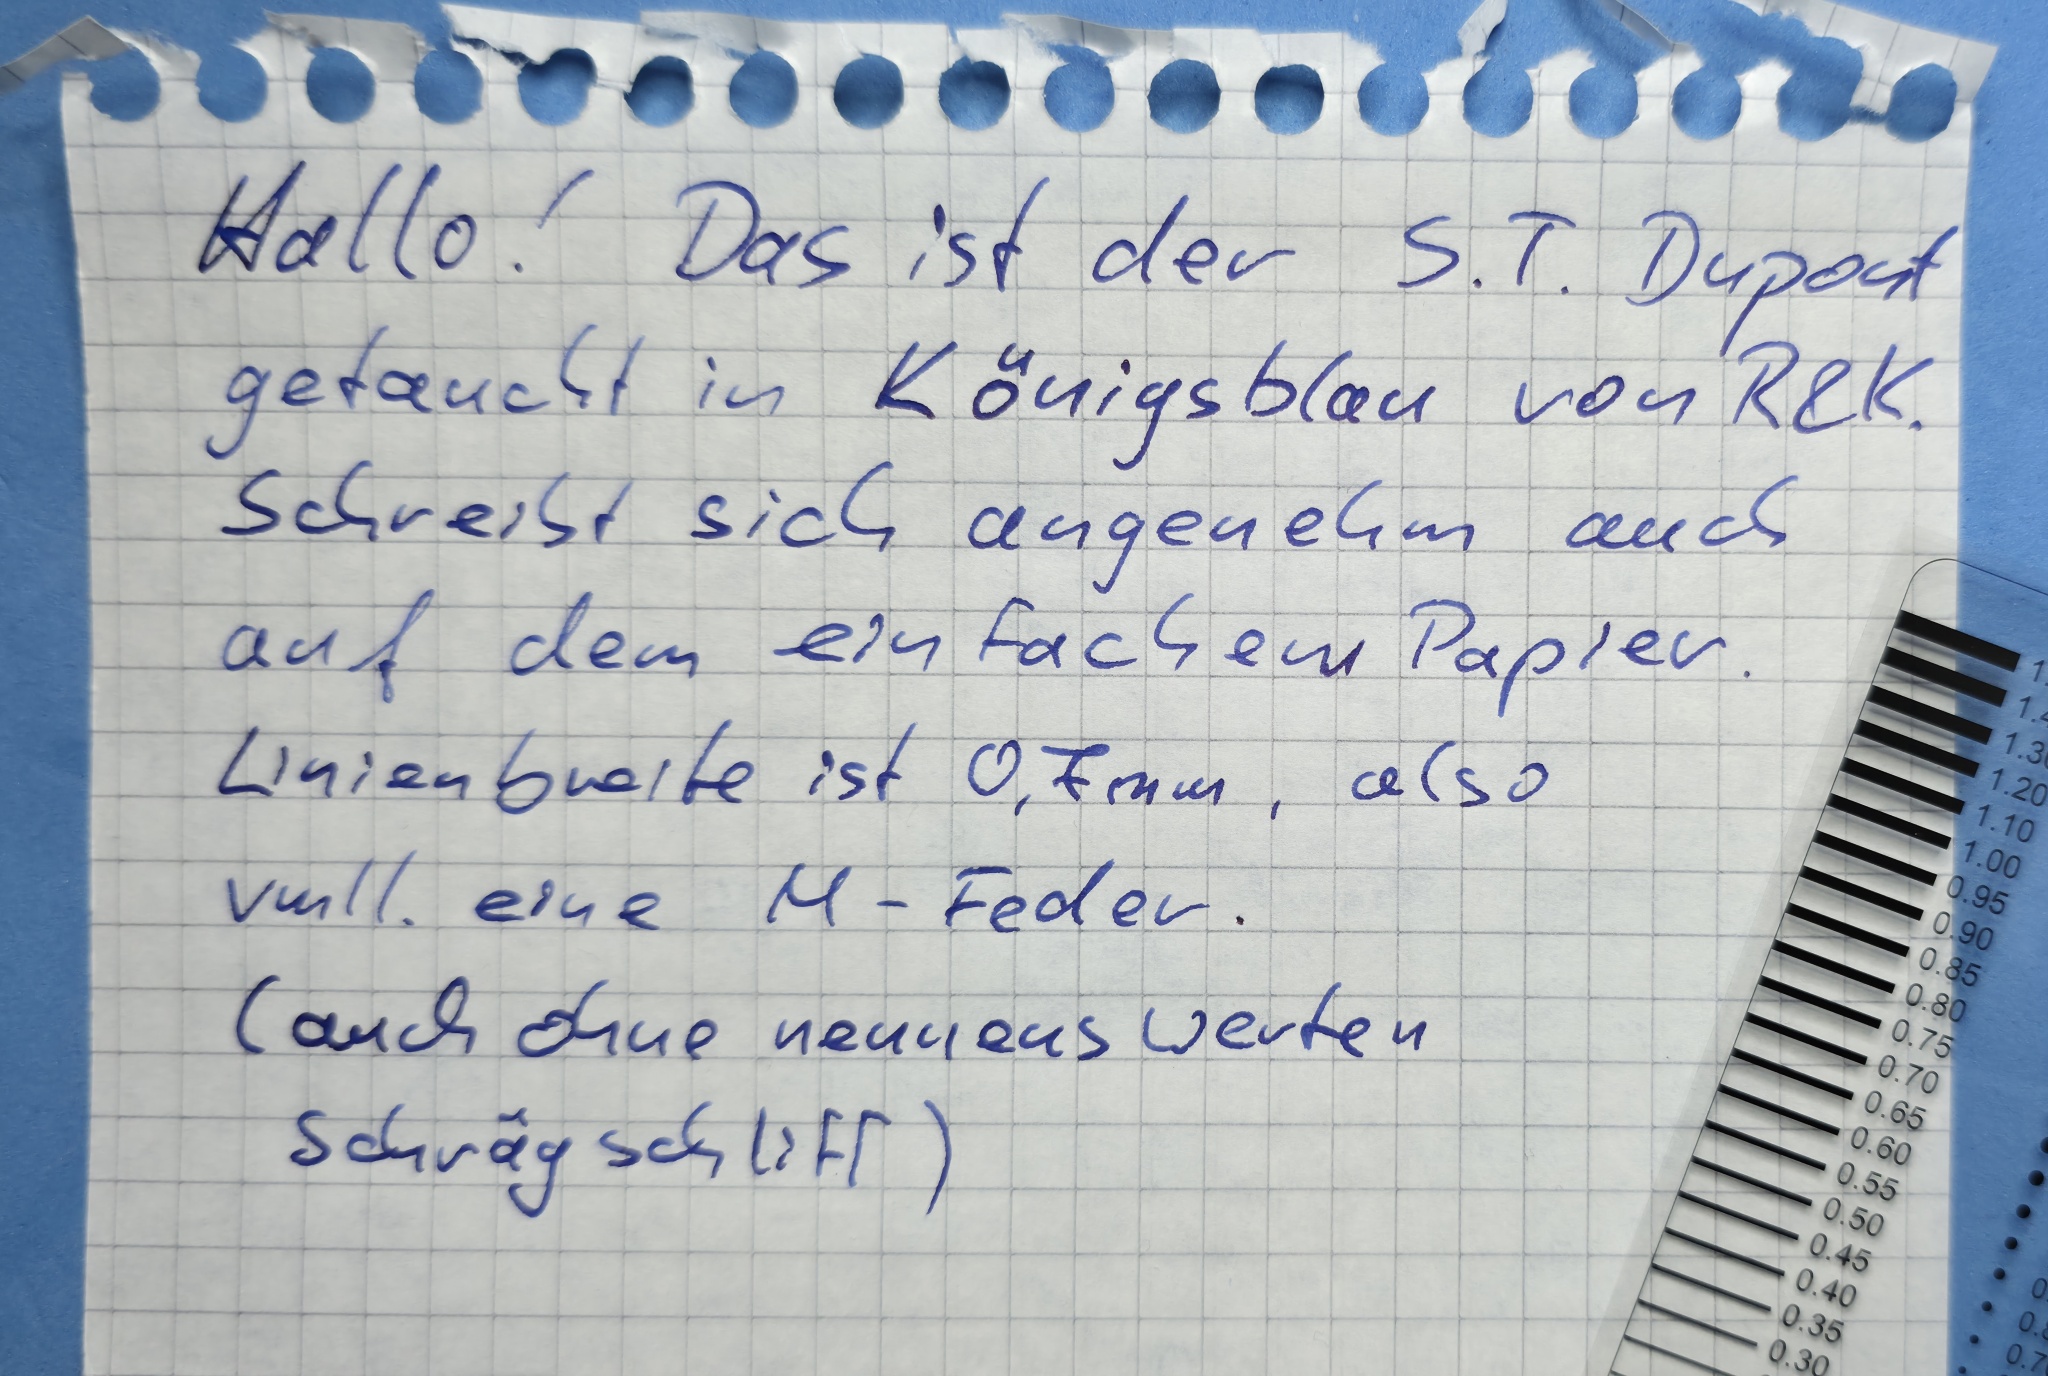 Hallo! Das ist der S.T. Dupont
getaucht in Königsblau von R&K.
Schreibt sich angenehm auch
auf dem einfachem Papier.
Linienbreite ist 0,7mm, also
vmtl. eine M-Feder.
(auch ohne nennenswerten
Schrägschliff)
1.30
1.20
1.10
1.00
0.95
0.90
0.85
0.80
0.75
0.70
0.65
0.60
0.55
0.50
0.45
0.40
0.35
0.30